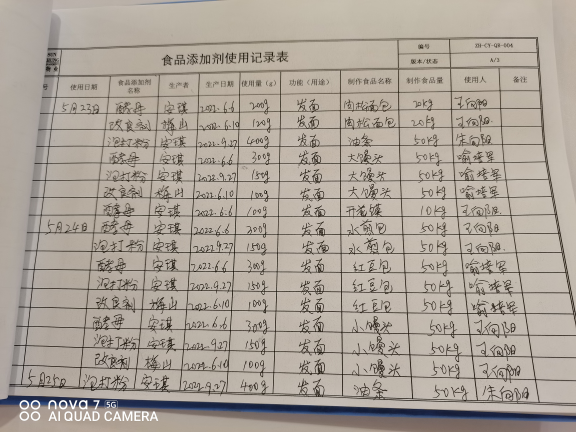 食品添加剂使用记录表
编号 ZH-CY-QR-004
版本/状态 A/3
号 使用日期 食品添加剂名称 生产者 生产日期 使用量(g) 功能(用途) 制作食品名称 制作食品量 使用人 备注
5月23日 酵母 安琪 2022.6.6 200g 发面 肉松面包 20kg 王向阳
改良剂 梅山 2022.6.10 120g 发面 肉松面包 20kg 王向阳
泡打粉 安琪 2022.9.27 400g 发面 油条 50kg 朱向阳
酵母 安琪 2022.6.6 300g 发面 大馒头 50kg 喻培军
泡打粉 安琪 2022.9.27 150g 发面 大馒头 50kg 喻培军
改良剂 梅山 2022.6.10 100g 发面 大馒头 50kg 喻培军
酵母 安琪 2022.6.6 100g 发面 开花馍 10kg 王向阳
5月24日 酵母 安琪 2022.6.6 200g 发面 水煎包 50kg 王向阳
泡打粉 安琪 2022.9.27 150g 发面 水煎包 50kg 王向阳
酵母 安琪 2022.6.6 300g 发面 红豆包 50kg 喻培军
泡打粉 安琪 2022.9.27 150g 发面 红豆包 50kg 喻培军
改良剂 梅山 2022.6.10 100g 发面 红豆包 50kg 喻培军
酵母 安琪 2022.6.6 300g 发面 小馒头 50kg 王向阳
泡打粉 安琪 2022.9.27 150g 发面 小馒头 50kg 王向阳
改良剂 梅山 2022.6.10 100g 发面 小馒头 50kg 王向阳
5月25日 泡打粉 安琪 2022.9.27 400g 发面 油条 50kg 朱向阳
nova 7 5G
AI QUAD CAMERA